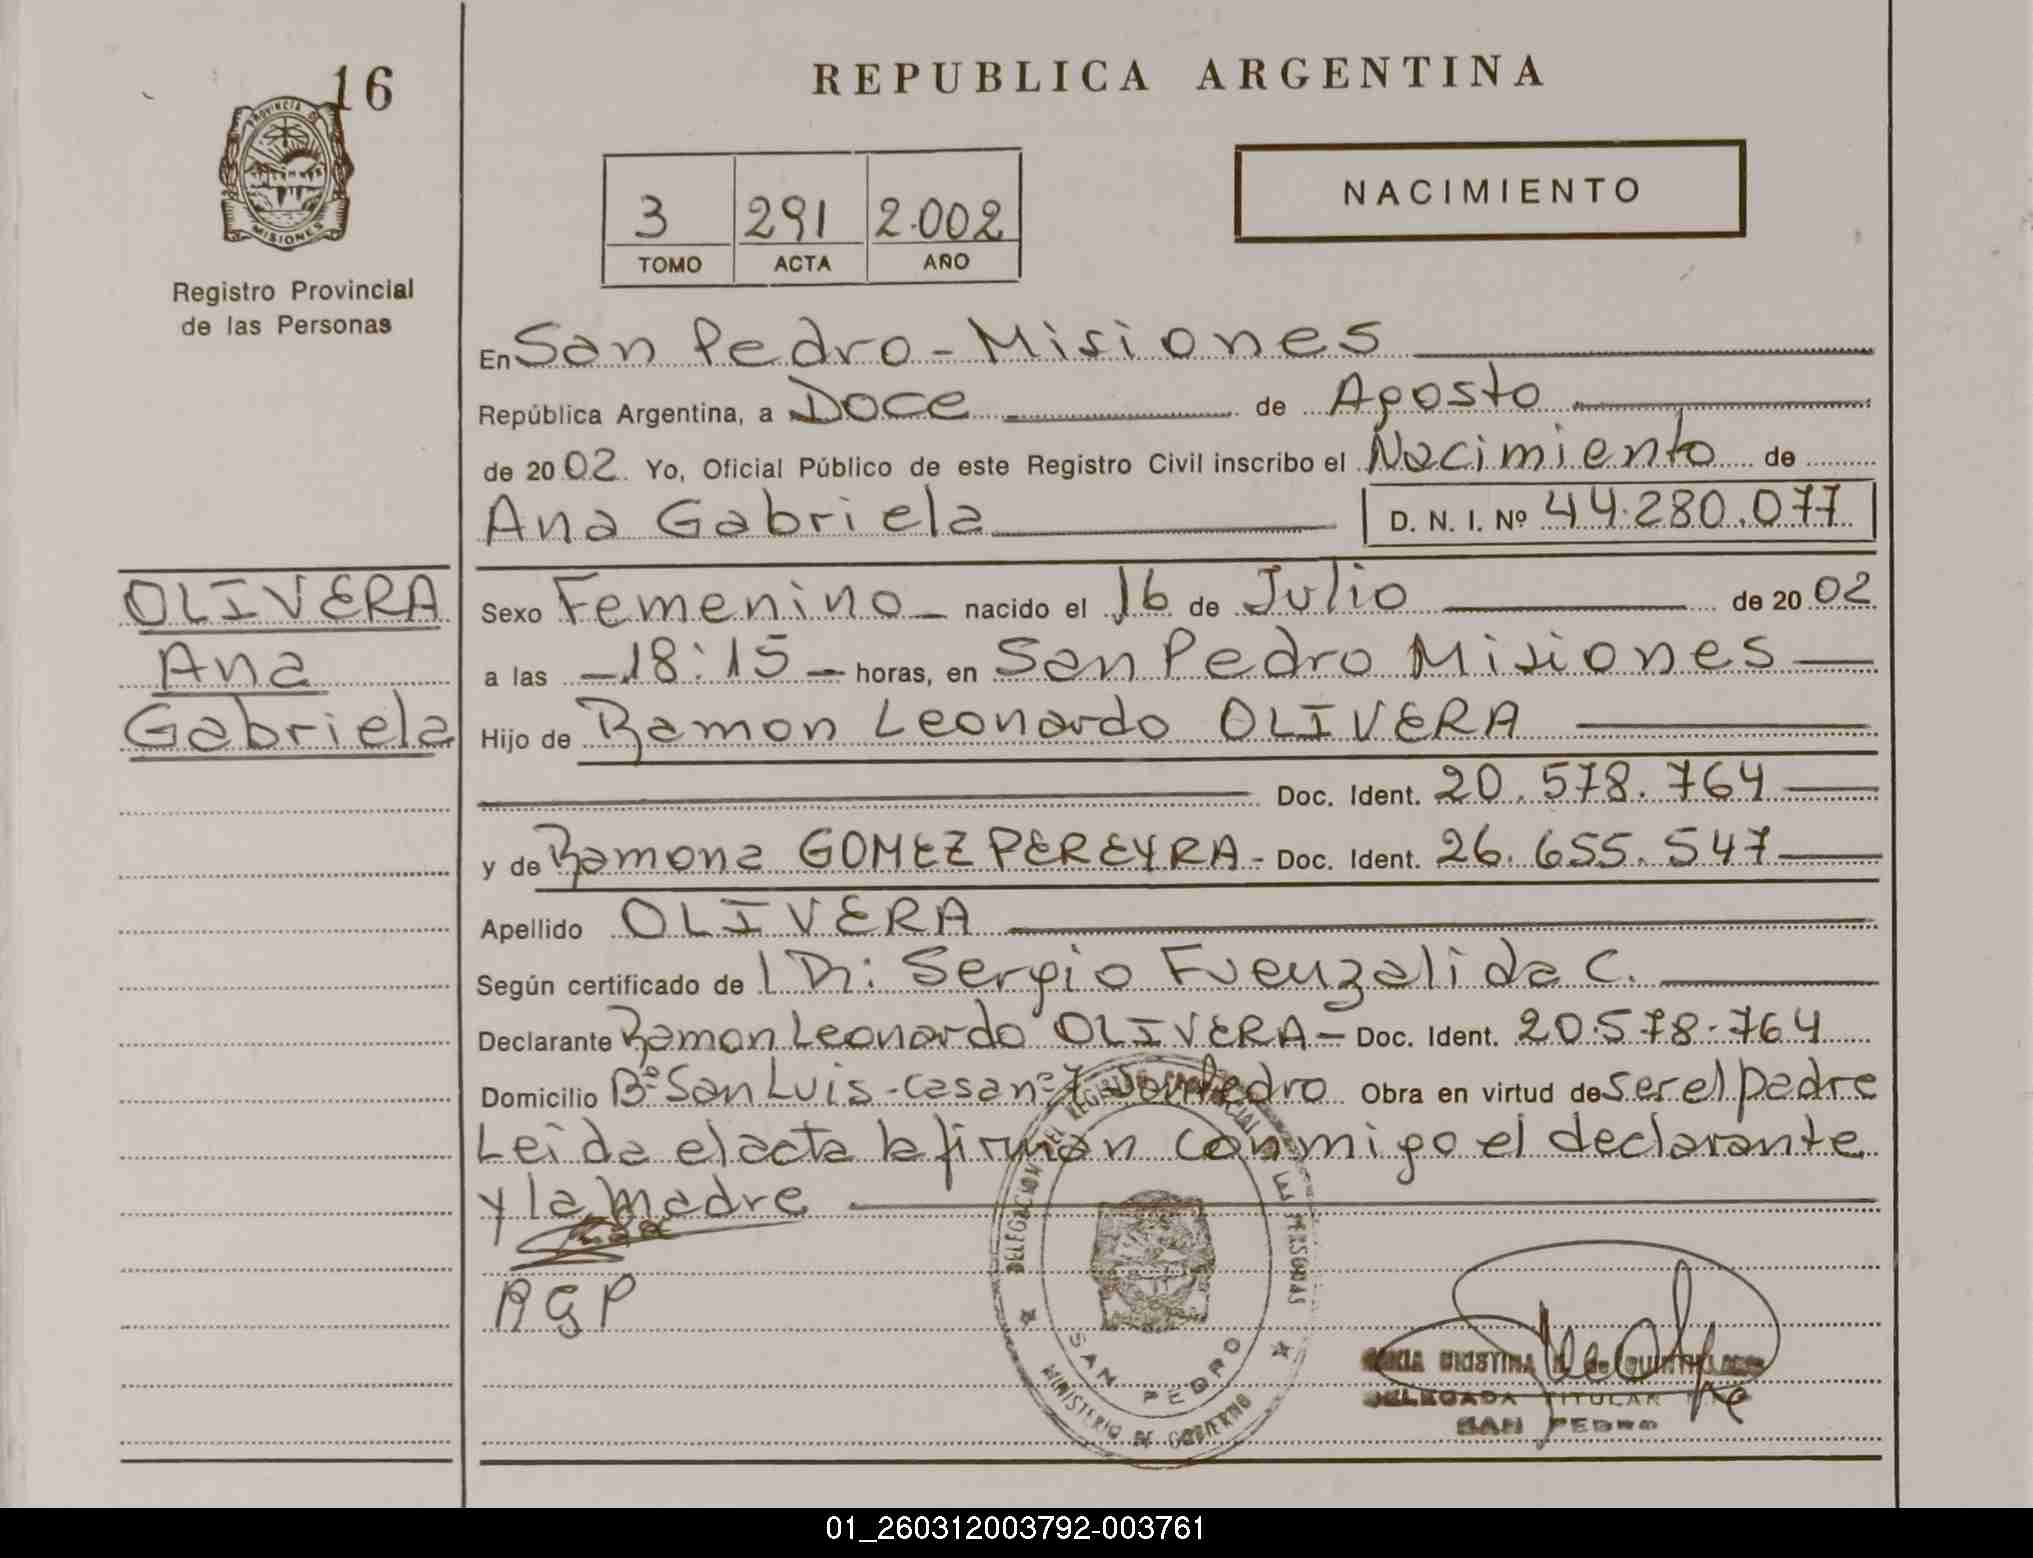 16
PROVINCIA DE
MISIONES
Registro Provincial
de las Personas
REPUBLICA ARGENTINA
3 291 2.002
TOMO ACTA AÑO
NACIMIENTO
En San Pedro - Misiones
República Argentina, a Doce de Agosto
de 2002. Yo, Oficial Público de este Registro Civil inscribo el Nacimiento de
Ana Gabriela D. N. I. Nº 44.280.077
OLIVERA
Ana
Gabriela
Sexo Femenino nacido el 16 de Julio de 2002
a las - 18:15 - horas, en San Pedro Misiones
Hijo de Ramon Leonardo OLIVERA
Doc. Ident. 20.578.764
y de Ramona GOMEZ PEREYRA - Doc. Ident. 26.655.547
Apellido OLIVERA
Según certificado de Dr: Sergio Fuenzalida C.
Declarante Ramon Leonardo OLIVERA - Doc. Ident. 20.578.764
Domicilio Bº San Luis - casa nº 7 San Pedro Obra en virtud de ser el padre
Leida el acta la firman conmigo el declarante
y la madre
RGP
DELEGACION DEL REGISTRO PROVINCIAL DE LAS PERSONAS
SAN PEDRO
MINISTERIO DE GOBIERNO
CRISTINA
DELEGADA TITULAR
SAN PEDRO
01_260312003792-003761